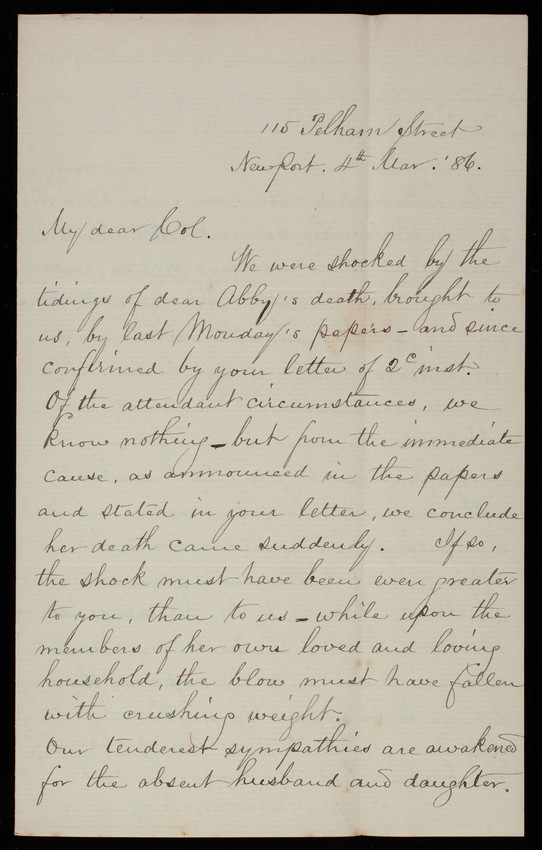 115 Pelham Street
Newport. 4th Mar. '86.
My dear Col.
We were shocked by the
tidings of dear Abby's death, brought to
us, by last Monday's papers - and since
confirmed by your letter of 2c inst.
Of the attendant circumstances, we
know nothing - but from the immediate
cause, as announced in the papers
and stated in your letter, we conclude
her death came suddenly. If so,
the shock must have been even greater
to you, than to us - while upon the
members of her own loved and loving
household, the blow must have fallen
with crushing weight.
Our tenderest sympathies are awakened
for the absent husband and daughter.